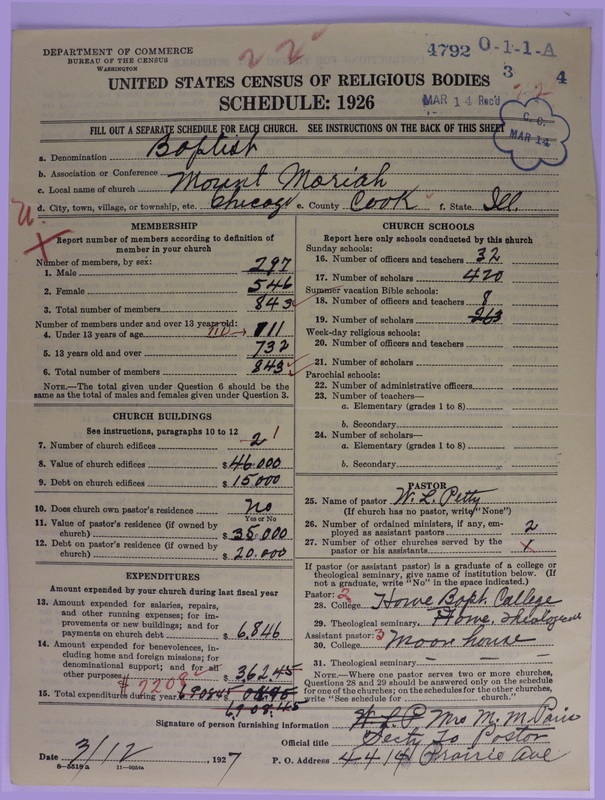 DEPARTMENT OF COMMERCE
BUREAU OF THE CENSUS
WASHINGTON
22
4792 0-1-1-A
3 4
MAR 14 Rec'd
C. C.
MAR 14
UNITED STATES CENSUS OF RELIGIOUS BODIES
SCHEDULE: 1926
FILL OUT A SEPARATE SCHEDULE FOR EACH CHURCH. SEE INSTRUCTIONS ON THE BACK OF THIS SHEET
a. Denomination Baptist
b. Association or Conference
c. Local name of church Mount Moriah
d. City, town, village, or township, etc. Chicago e. County Cook f. State Ill.
MEMBERSHIP
Report number of members according to definition of
member in your church
Number of members, by sex:
1. Male 297
2. Female 546
3. Total number of members 843
Number of members under and over 13 years old:
4. Under 13 years of age 110 111
5. 13 years old and over 732
6. Total number of members 843
NOTE.—The total given under Question 6 should be
same as the total of males and females given under Question 3.
CHURCH BUILDINGS
See instructions, paragraphs 10 to 12
7. Number of church edifices 2 1
8. Value of church edifices $ 46.000
9. Debt on church edifices $ 15000
10. Does church own pastor's residence? No
Yes or No
11. Value of pastor's residence (if owned by
church) $ 35.000
12. Debt on pastor's residence (if owned by
church) $ 20.000
EXPENDITURES
Amount expended by your church during last fiscal year
13. Amount expended for salaries, repairs,
and other running expenses; for im-
provements or new buildings; and for
payments on church debt $ 6,846
14. Amount expended for benevolences, in-
cluding home and foreign missions; for
denominational support; and for all
other purposes $ 362.45
$7208
15. Total expenditures during year
CHURCH SCHOOLS
Report here only schools conducted by this church
Sunday schools:
16. Number of officers and teachers 32
17. Number of scholars 420
Summer vacation Bible schools:
18. Number of officers and teachers 8
19. Number of scholars 263
Week-day religious schools:
20. Number of officers and teachers
21. Number of scholars
Parochial schools:
22. Number of administrative officers
23. Number of teachers—
a. Elementary (grades 1 to 8)
b. Secondary
24. Number of scholars—
a. Elementary (grades 1 to 8)
b. Secondary
PASTOR
25. Name of pastor W. L. Petty
(If church has no pastor, write "None")
26. Number of ordained ministers, if any, em-
ployed as assistant pastors 2
27. Number of other churches served by the
pastor or his assistants x
If pastor (or assistant pastor) is a graduate of a college or
theological seminary, give name of institution below. (If
not a graduate, write "No" in the space indicated.)
Pastor: 2
28. College Howe Bapt. College
29. Theological seminary Howe, Theological
Assistant pastor: 3
30. College Moon house
31. Theological seminary — — —
NOTE.—Where one pastor serves two or more churches,
Question 28 and 29 should be answered only on the schedule
for one of the churches; on the schedules for the other churches,
write "See schedule for church."
Signature of person furnishing information W. L. P Mrs M. M. Paris
Official title Secty To Pastor
Date 3/12, 1927 P. O. Address 4414 Prairie Ave
8—5518a 11—9054a